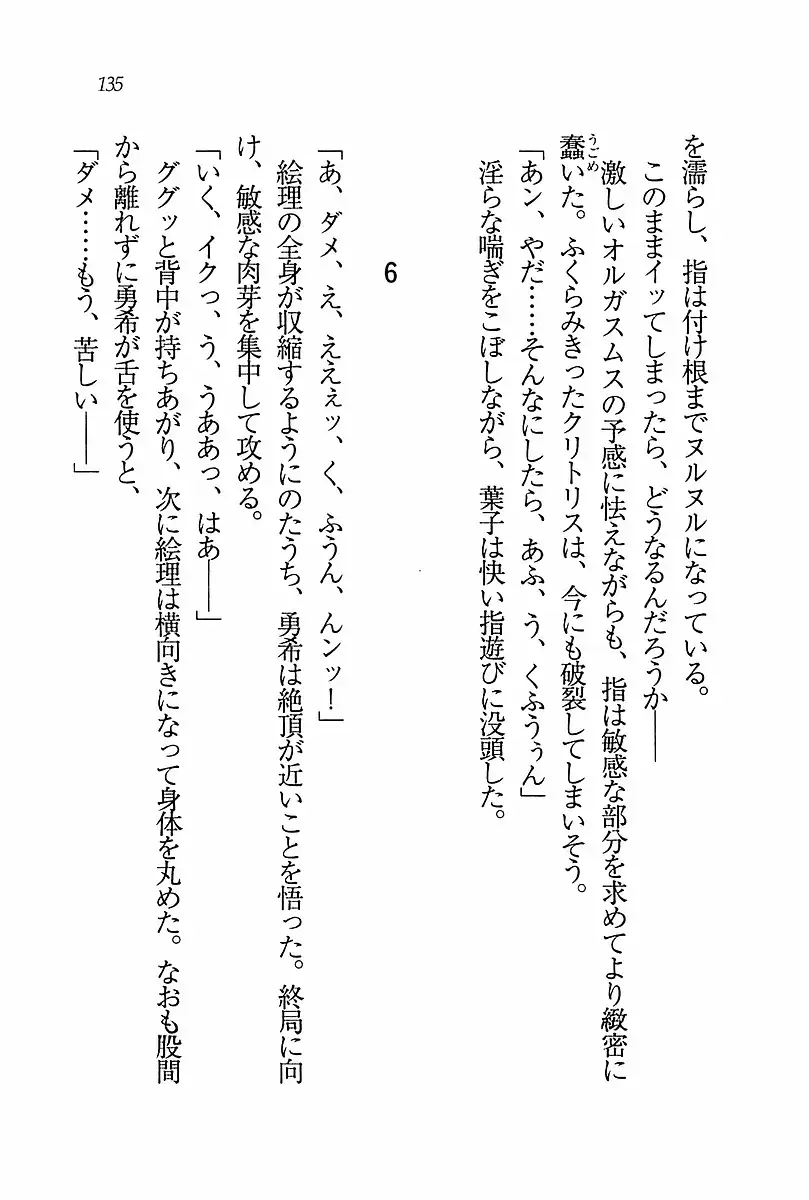 135
を濡らし、指は付け根までヌルヌルになっている。
このままイッてしまったら、どうなるんだろうか――
激しいオルガスムスの予感に怯えながらも、指は敏感な部分を求めてより緻密に
蠢いた。ふくらみきったクリトリスは、今にも破裂してしまいそう。
うごめ
「あン、やだ……そんなにしたら、あふ、う、くふうぅん」
淫らな喘ぎをこぼしながら、葉子は快い指遊びに没頭した。
6
「あ、ダメ、え、ええぇッ、く、ふうん、んンッ！」
絵理の全身が収縮するようにのたうち、勇希は絶頂が近いことを悟った。終局に向
け、敏感な肉芽を集中して攻める。
「いく、イクっ、う、うああっ、はあ――」
ググッと背中が持ちあがり、次に絵理は横向きになって身体を丸めた。なおも股間
から離れずに勇希が舌を使うと、
「ダメ……もう、苦しい――」